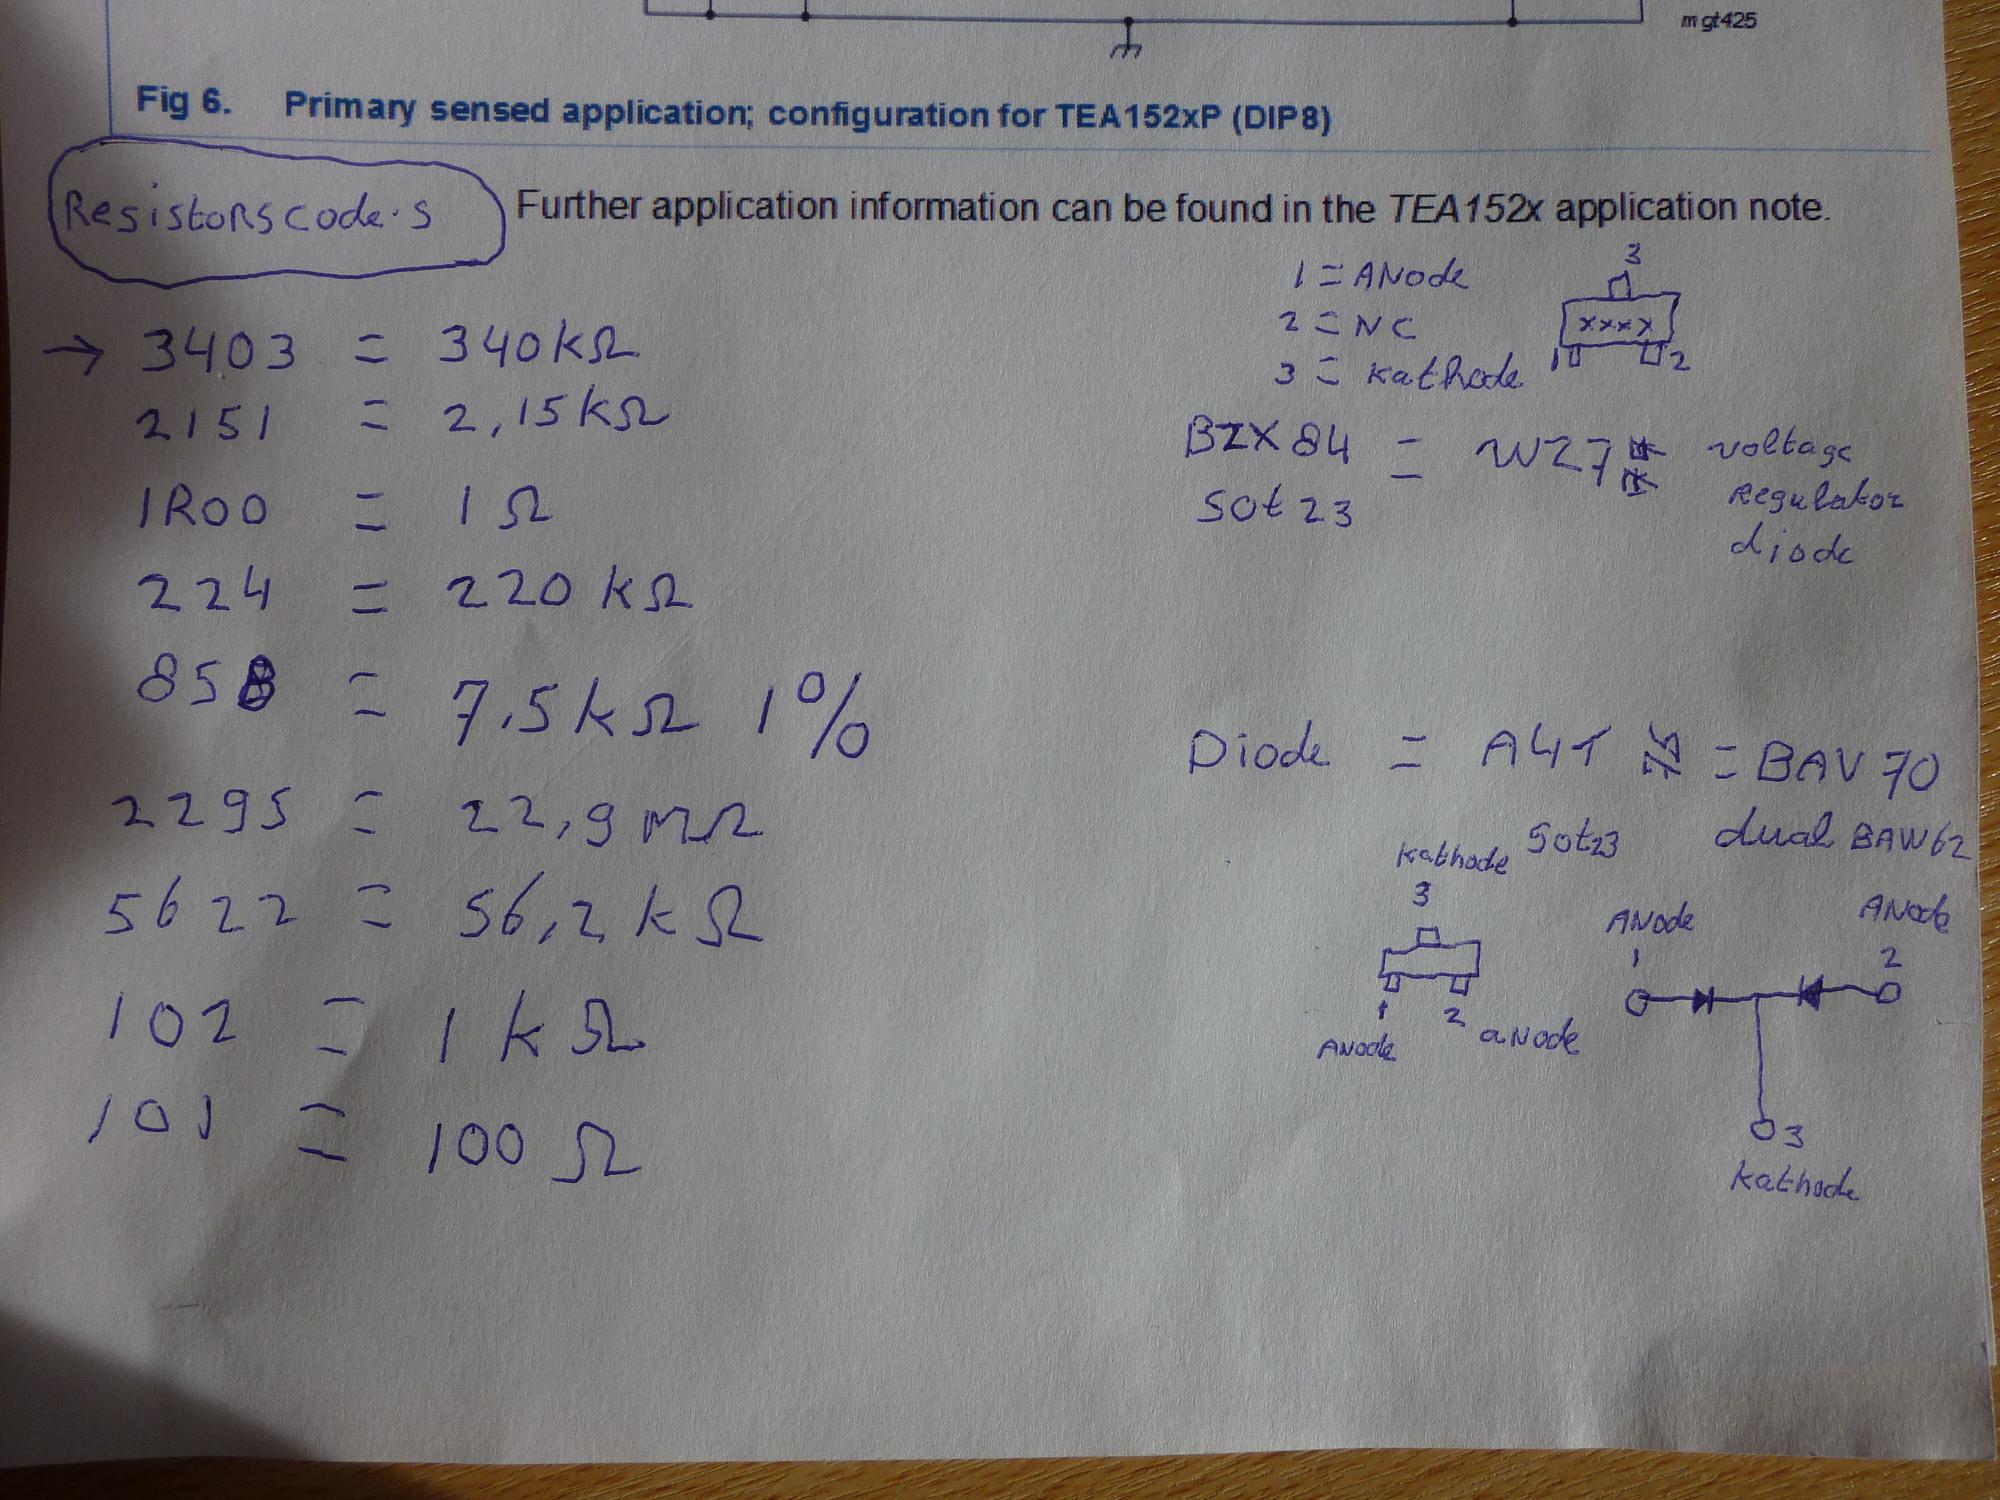 mgt425
Fig 6. Primary sensed application; configuration for TEA152xP (DIP8)
Resistorscode.s
Further application information can be found in the TEA152x application note.
→ 3403 = 340kΩ
2151 = 2,15kΩ
1R00 = 1Ω
224 = 220 kΩ
85B = 7.5kΩ 1%
2295 = 22,9MΩ
5622 = 56,2kΩ
102 = 1kΩ
101 = 100Ω
1 = ANode
2 = NC
3 = Kathode
3
xxxx
1 2
BZX84 = WZ7 voltage
Sot23 Regulator
diode
Diode = A4t = BAV70
Sot23 dual BAW62
Kathode
3
1 2
ANode aNode
ANode ANode
1 2
3
Kathode